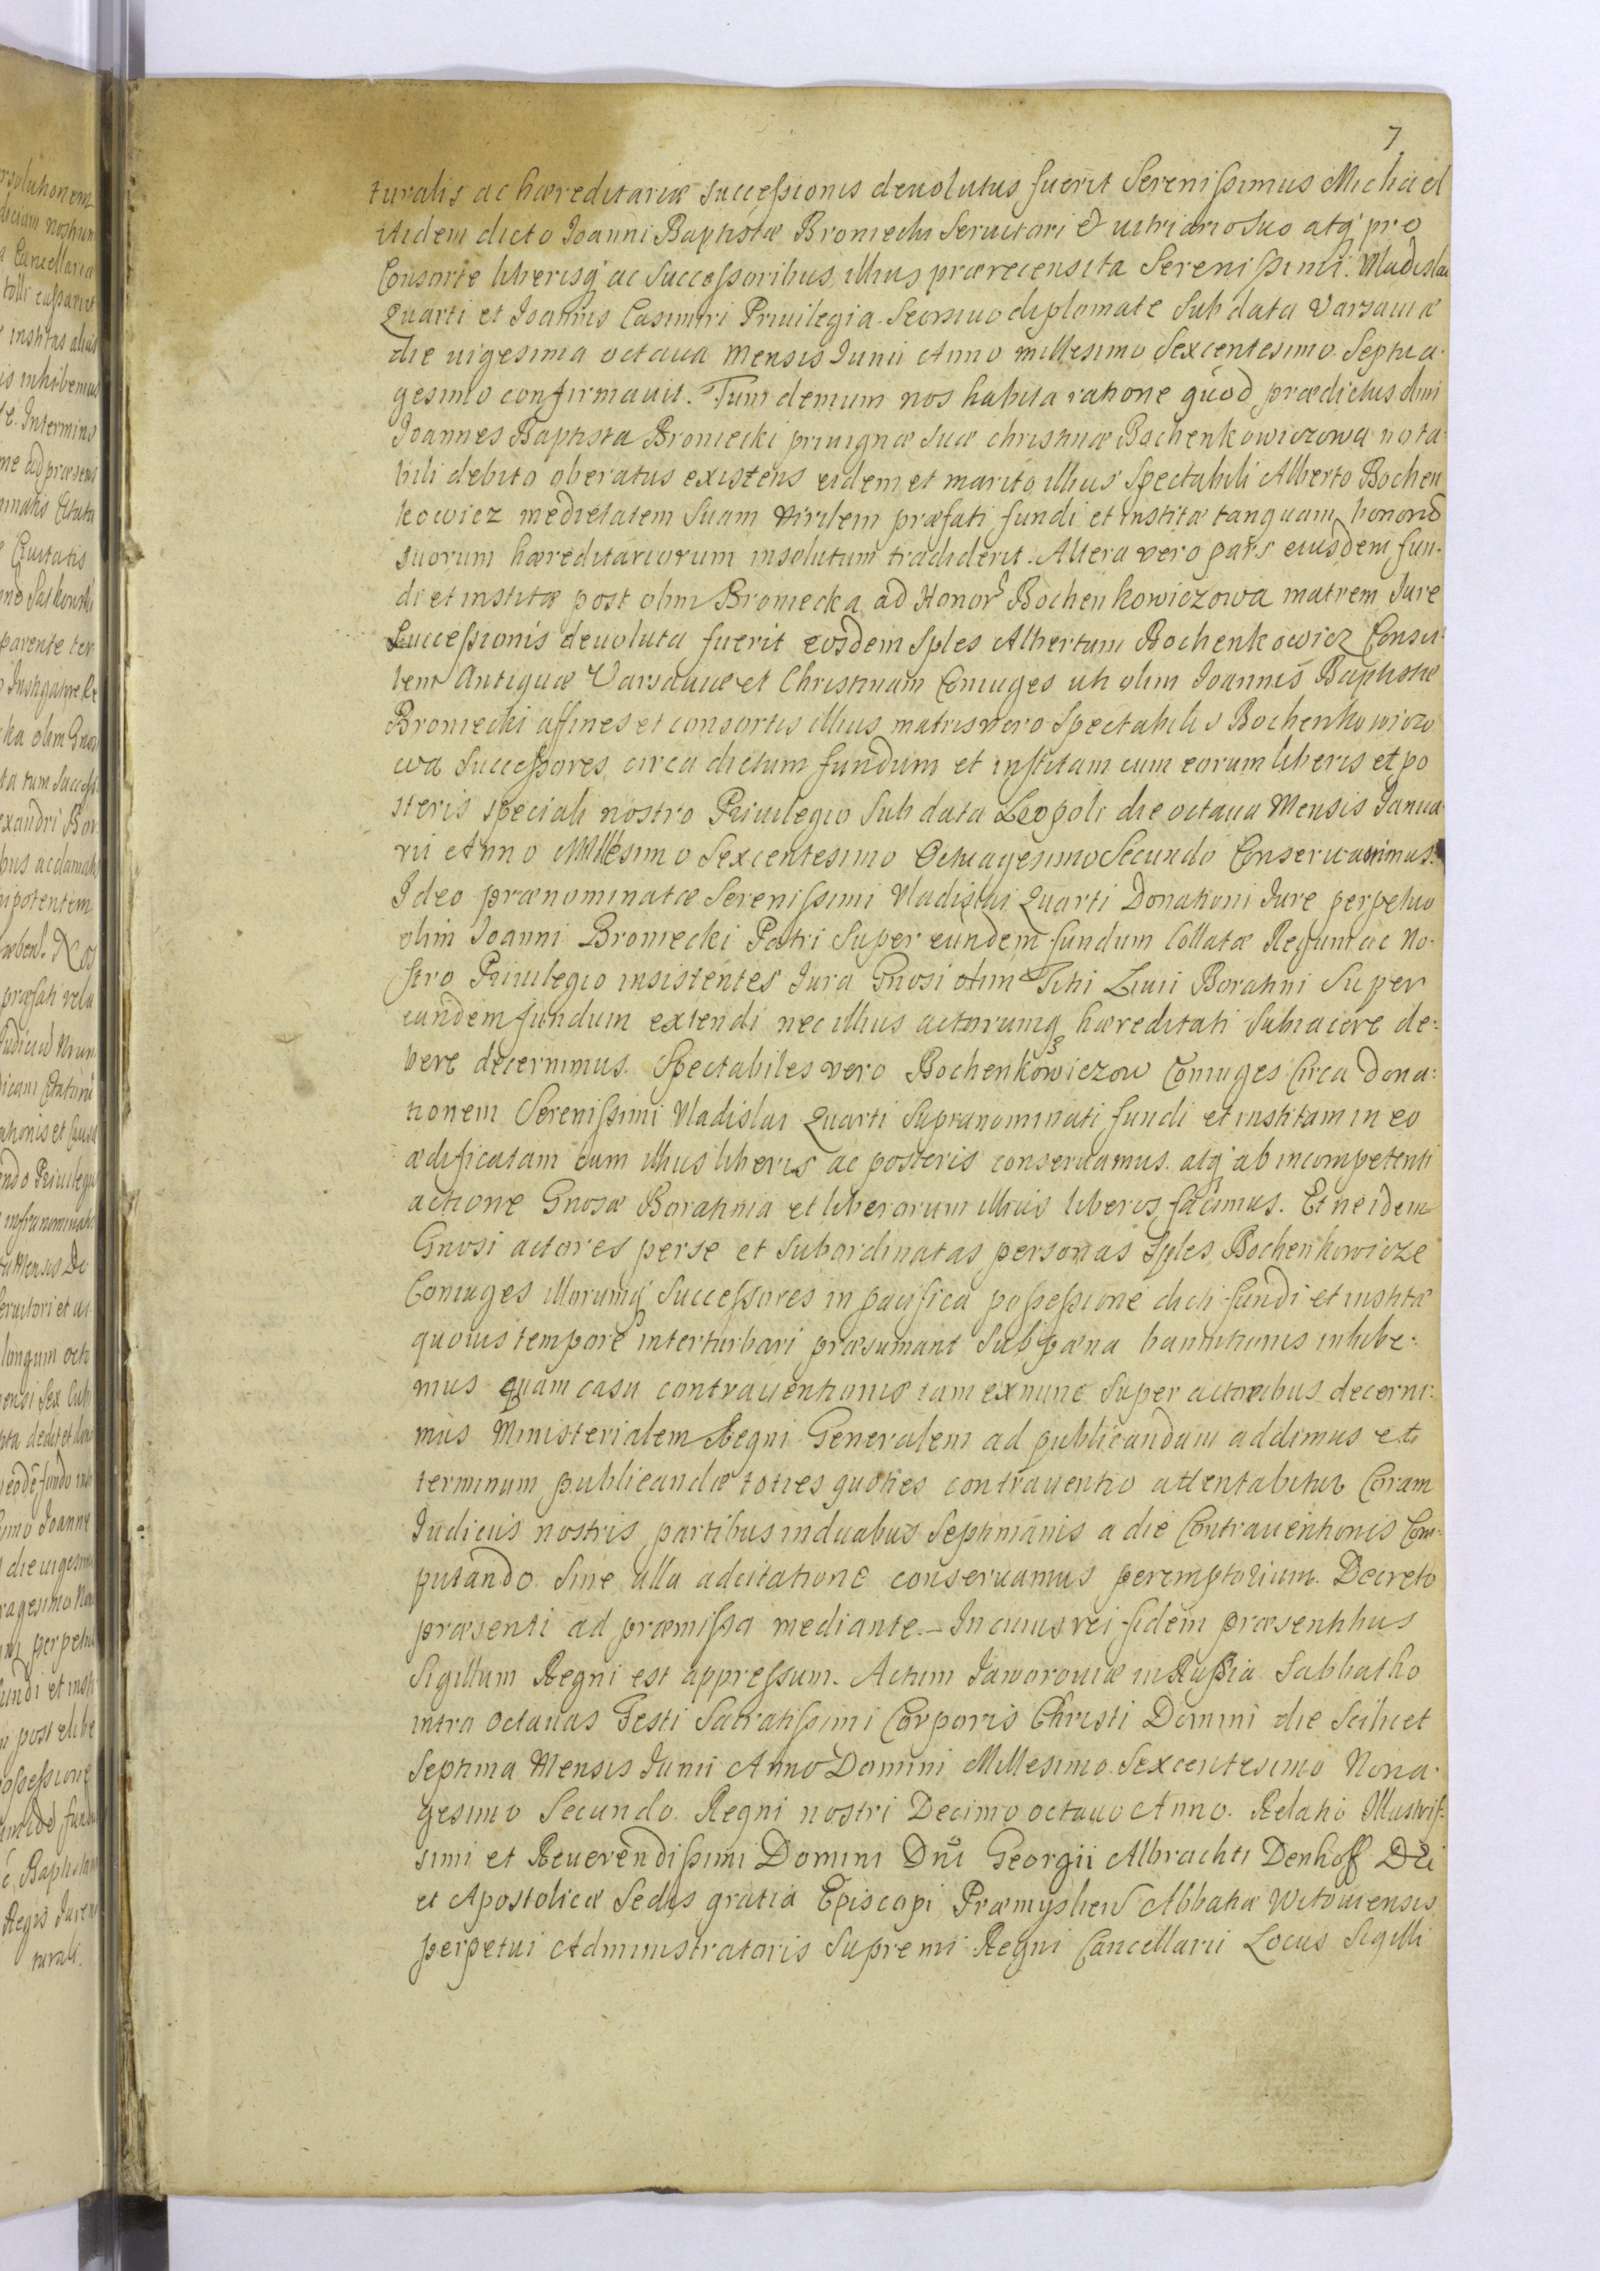 7
turalis ac hæreditariæ successionis deuolutus fuerit Serenissimus Michael
itidem dicto Joanni Baptistæ Broniecki Seruitori & vitriario suo atq pro
Consorte liberisq ac Successoribus illius prærecensita Serenissimi Vladislai
Quarti et Joannis Casimiri Priuilegia Seorsiuo diplomate Sub data Varsauiæ
die uigesima octaua Mensis Junii Anno millesimo Sexcentesimo Septua-
gesimo confirmauit. Tum demum nos habita ratione quod prædictus olim
Joannes Baptista Broniecki priuignæ suæ christinæ Bochenkowiczowa nota-
bili debito oberatus existens eidem et marito illius Spectabili Alberto Bochen
kowicz medietatem suam virilem præfati fundi et institæ tanquam bonord
suorum hæreditariorum insolutum tradiderit. Altera vero pars eiusdem fun-
di et institæ post olim Broniecka ad Honor Bochenkowiczowa matrem Jure
Successionis deuoluta fuerit eosdem Sples Albertum Bochenkowicz Consu-
lem Antiquæ Varsauiæ et Christinam Coniuges uti olim Joannis Baptistæ
Broniecki affines et consortis illius matris vero Spectabilis Bochenkowiczo
wa Successores circa dictum fundum et institam cum eorum liberis et po
steris speciali nostro Priuilegio Sub data Leopoli die octaua Mensis Janua
rii Anno Millesimo Sexcentesimo Octuagesimo Secundo Conseruauimus.
Ideo prænominatæ Serenissimi Vladislai Quarti Donationi Jure perpetuo
olim Joanni Broniecki Patri Super eundem fundum Collatæ Regum ac No-
stro Priuilegio insistentes Jura Gnosi olim Titi Liuii Boratini Super
eundem fundum extendi nec illius actorumq hæreditati Subiacere de-
bere decernimus. Spectabiles vero Bochenkowiczow Coniuges Circa Dona-
tionem Serenissimi Vladislai Quarti Supranominati fundi et institam in eo
ædificatam cum illius liberis ac posteris conseruamus atq ab incompetenti
actione Gnosæ Boratinia et liberorum illius liberos facimus. Et ne idem
Gnosi actores perse et Subordinatas personas Sples Bochenkowicze
Coniuges illorumq Successores in pacifica possessione dicti fundi et institæ
quouis tempore interturbari præsumant Sub pœna bannitionis inhibe-
mus quam casu contrauentionis iam exnunc Super actoribus decerni-
mus Ministerialem Regni Generalem ad publicandam addimus et
terminum publicandæ toties quoties contrauentio attentabitur Coram
Judiciis nostris partibus induabus Septimanis a die Contrauentionis Com-
putando Sine ulla adcitatione conseruamus peremptorium. Decreto
præsenti ad præmissa mediante. In cuius rei fidem præsentibus
Sigillum Regni est appressum. Actum Jaworouiæ in Russia Sabbatho
intra octauas Festi Sacratissimi Corporis Christi Domini die Scilicet
Septima Mensis Junii Anno Domini Millesimo Sexcentesimo Nona-
gesimo Secundo. Regni nostri Decimo octauo Anno. Relatio Illustris-
simi et Reuerendissimi Domini Dni Georgii Albrachti Denhoff Dei
et Apostolicæ Sedis gratia Episcopi Præmyslien Abbatiæ Witouiensis
perpetui Administratoris Supremi Regni Cancellarii Locus Sigilli